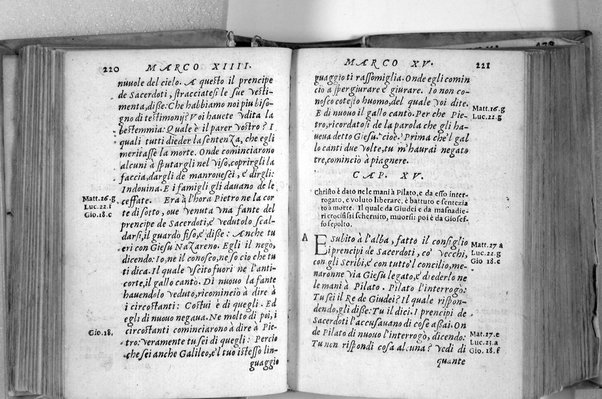 220 MARCO XIIII.
nuuole del cielo. A questo il prencipe
de Sacerdoti, stracciatesi le sue vesti-
menta, disse: Che habbiamo noi piu biso-
gno di testimonij? Voi hauete vdita la
bestemmia: Quale è il parer vostro? I
quali tutti dieder la sentenza, che egli
meritasse la morte. Onde cominciarono
alcuni à sputargli nel viso, coprirgli la
faccia, dargli de manrouesci, è dirgli:
Indouina. E i famigli gli dauano de le
ceffate. Era à l'hora Pietro ne la cor
te di sotto, oue venuta vna fante del
prencipe de Sacerdoti, è vedutolo scal-
darsi, il guardò fiso, è disse: Anche tu
eri con Giesu Nazareno. Egli il negò,
dicendo: Io, ne il conosco, ne so cio che tu
ti dica. Il quale vscito fuori ne l'anti-
corte, il gallo canto. Di nuouo la fante
hauendolo veduto, ricominciò à dire à
i circostanti: Costui è di quegli. Ed
egli di nuouo negaua. Ne molto di poi, i
circostanti cominciarono à dire à Pie-
tro: Veramente tu sei di quegli: Percio
che sei anche Galileo, e'l tuo istesso lin-
guaggio
Matt.26.g
Luc.22.f
Gio.18.c
Gio.18.
MARCO XV. 221
guaggio ti rassomiglia. Onde egli comin
ciò a spergiurare è giurare. Io non co
nosco cotesto huomo, del quale voi dite.
E di nuouo il gallo canto. Per che Pie-
tro, ricordatosi de la parola che gli ha-
ueua detto Giesu, cioè: Prima che'l gal
lo canti due volte, tu m'haurai negato
tre, cominciò à piagnere.
Matt.26.g
Luc.22.g.
CAP. XV.
Christo è dato nele mani à Pilato, e da esso inter-
rogato, e voluto liberare, è battuto e sentezia
to à morte. Il quale da Giudei e da masnadie-
ri crocifissi schernito, muorsi: poi è da Giosef-
fo sepolto.
A
E Subito à l'alba, fatto il consiglio
i prencipi de Sacerdoti, co' vecchi,
con gli Scribi, è con tutto'l concilio, me-
naronne via Giesu legato, è diederlo ne
le mani à Pilato. Pilato l'interrogo:
Tu sei il Re de Giudei? Il quale rispon-
dendo, gli disse: Tu il dici. I prencipi de
Sacerdoti l'accusauano di cose assai. On
de Pilato di nuouo l'interrogò, dicendo:
Tu non rispondi cosa alcuna? vedi di
quante
Matt.27.a
Luc.22.g
Gio.18.e
Matt.27.e
Luc.23.a
Gio.18.f